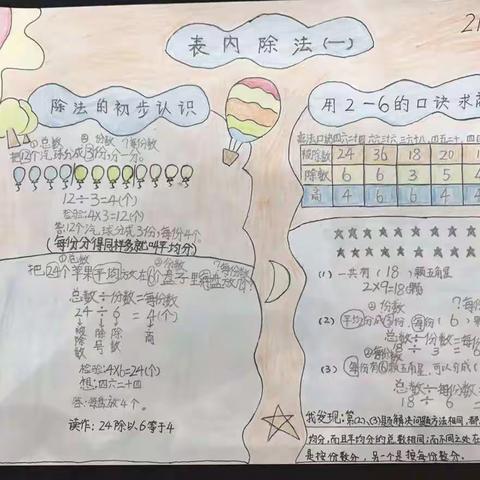 21
表内除法(一)
除法的初步认识
①总数 ②份数 ?每份数
把12个汽球分成3份,分一分。
12÷3=4(个)
检验:4×3=12(个)
答:12个汽球分成3份,每份4个。
(每份分得同样多就叫平均分)
①总数 ②份数 ?每份数
把24个苹果平均放在6个盘子里
总数÷份数=每份数
24÷6=4(个)
被除数 除号 除数 商
检验:4×6=24(个)
想:四六二十四
答:每盘放4个。
读作:24除以6等于4
用2-6的口诀求商
乘法口诀 四六二十四 六六三十六 三六十八 四五二十 四
被除数 24 36 18 20 1
除数 6 6 3 5 4
商 4 6 6 4
(1)一共有(18)颗五角星
2×9=18颗
②份数 ?每份数
(2)平均分成3份,每份(6)颗
总数÷份数=每份数
18÷3=6
②每份数
(3)每份有6颗五角星,可以分成(
总数÷每份数=
18÷6=
我发现:第(2)、(3)题解决问题方法相同,都
均分,而且平均分的总数相同;而不同之处在
是按份数分,另一个是按每份数分。